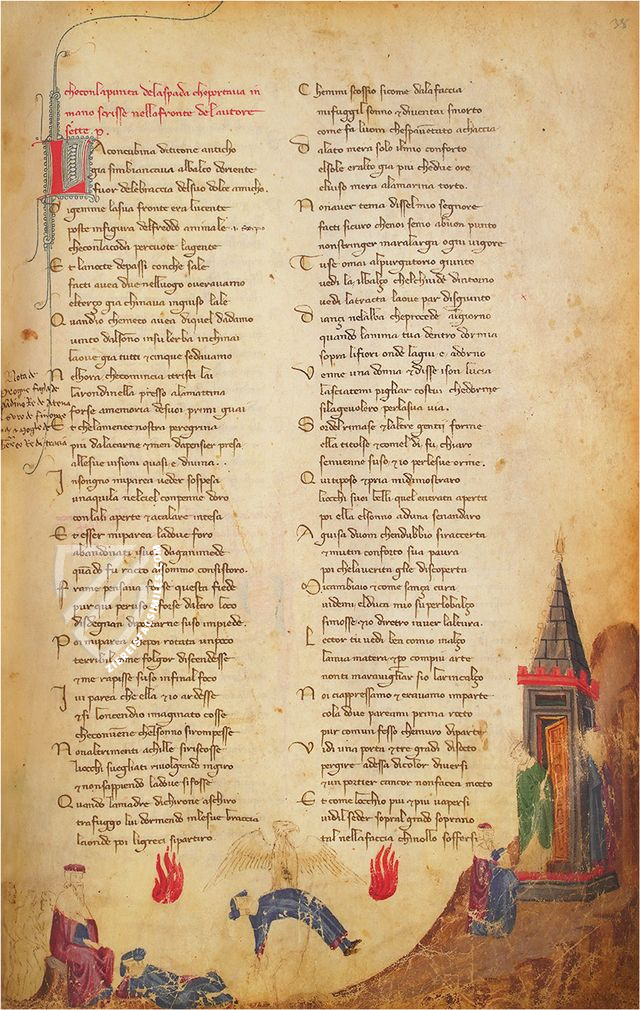 38
che con la punta de la spada che portaua in
mano scrisse nella fronte del autore
sette .p.
La concubina di titone anticho
gia simbiancaua albalco doriente
fuor delebraccia delsuo dolce amicho.
Di gemme lasua fronte era lucente
poste infigura delfreddo animale
checonlacoda percuote lagente
Et lanocte depassi conche sale
facti auea due nelluogo oueravamo
elterzo gia chinaua ingiuso lale
Quandio chemeco auea diquel dadamo
uinto dalsonno insu lerba inchinai
laoue gia tutti & cinque sedauamo
Nelhora checomincia itristi lai
larondinella presso alamattina
forse amemoria desuoi primi guai
Et chelamente nostra peregrina
piu dalacarne & men dapensier presa
allesue uisioni quasi e diuina.
Insogno miparea ueder sospesa
unaquila nelciel conpenne doro
conlali aperte & acalare intesa
Et esser miparea ladoue foro
abandonati isuoi daganimede
quando fu racto alsommo consistoro.
Frame pensaua forse questa fiede
pur qui peruso & forse daltro loco
disdegnan diportarne suso impiede.
Poi miparea chepoi rotata unpoco
terribil come folgor discendesse
& me rapisse suso infinal foco
Iui parea che ella & io ardesse
& si loncendio imaginato cosse
checonuenne chelsonno sirompesse
Nonaltrimenti achille siriscosse
liocchi suegliati riuolgendo ingiro
& nonsappiendo ladoue sifosse
Quando lamadre dachirone aschiro
trafuggo lui dormendo inlesue braccia
laonde poi ligreci sipartiro
Chemmi scossio sicome dalafaccia
mifuggil sonno & diuentai smorto
come fa luom chespauetato achaccia
Dalato mera solo ilmio conforto
elsole eralto gia piu chedue ore
eluiso mera alamarina torto.
Nonauer tema disselmio segnore
facti sicuro chenoi semo abuon punto
nonstringer maralarga ogni uigore
Tuse omai alpurgatorio giunto
uedi la ilbalzo chelchiude dintorno
uedi latracta laoue par disgiunto
Dianzi nelalba cheprocede algiorno
quando lanima tua dentro dormia
sopra lifiori onde lagiu e adorno
Venne una donna & disse ison lucia
lasciatemi pigliar costui chedorme
silageuolero perlasua uia.
Sordel rimase & laltre gentil forme
ella titolse & comel di fu chiaro
senuenne suso & io perlesue orme.
Qui tiposo & pria mi dimostraro
liocchi suoi belli quel entrata aperta
poi ella elsonno aduna senandaro
Aguisa duom chendubbio siraccerta
& mutin conforto sua paura
poi chelauerita glie discoperta
Micambiaio & come sanza cura
uidemi elduca mio su perlobalzo
simosse & io dirietro inuer laltura.
Lector tu uedi ben comio inalzo
lamia matera & po compiu arte
nonti marauigliar sio larincalzo
Noi cappressamo & erauamo imparte
cola doue pareami prima rocto
pur comun fesso chemuro diparte
Vidi una porta & tre gradi disocto
pergire adessa dicolor diuersi
& un portier cancor nonfacea mocto
Et come locchio piu & piu uapersi
uidil seder sopral grado soprano
tal nellafaccia chinollo soffersi
Nota de